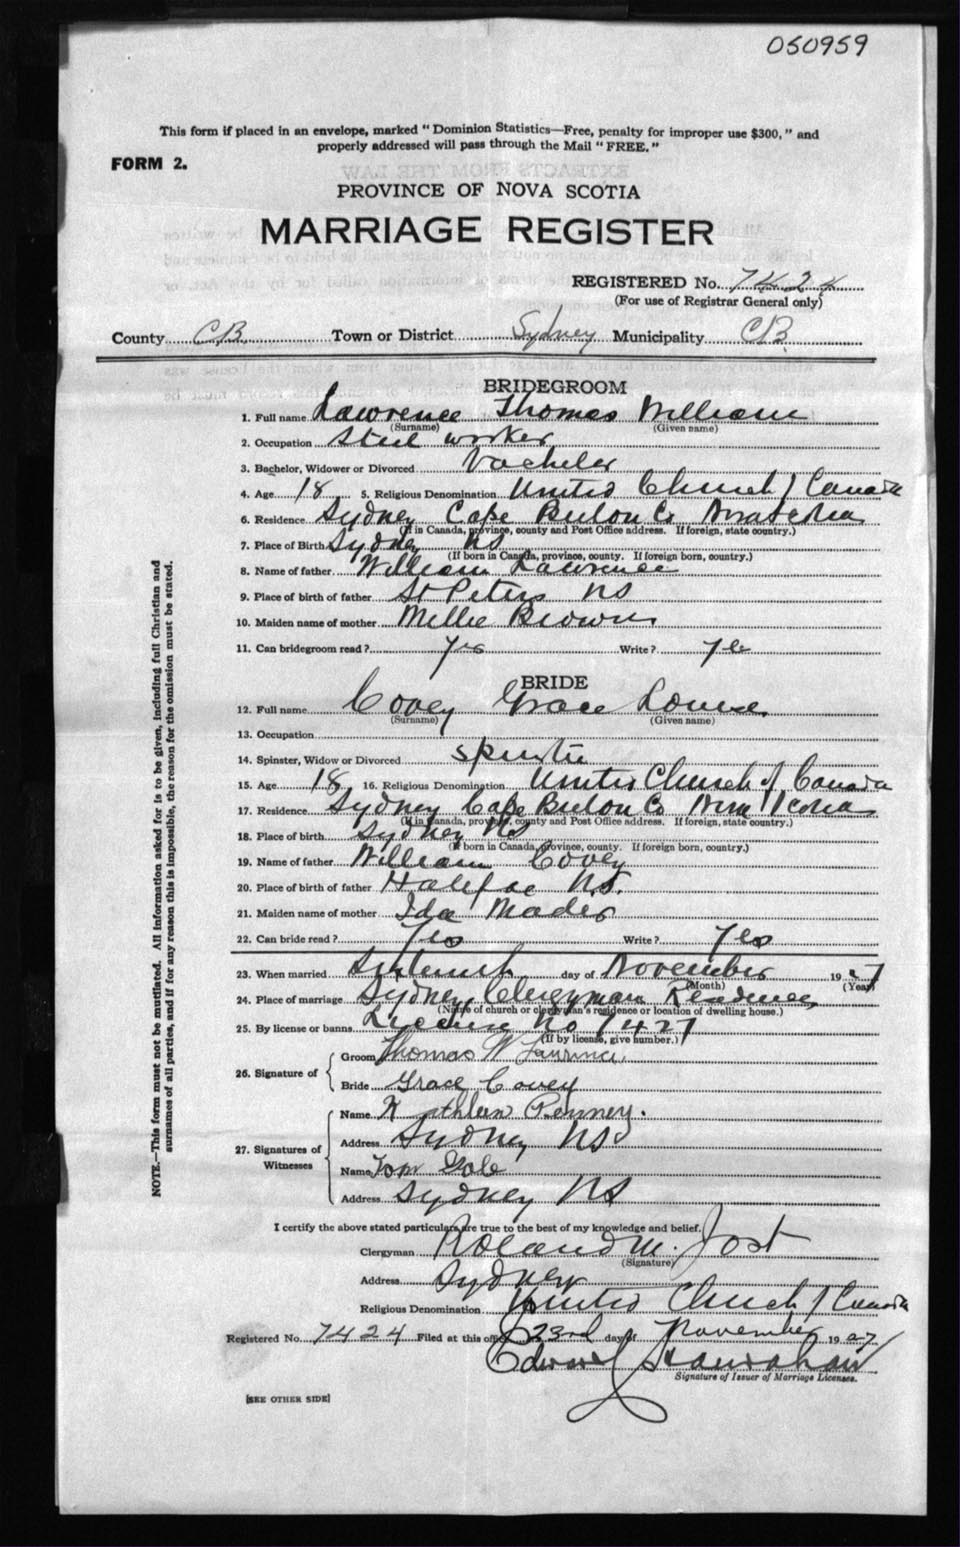 050959
This form if placed in an envelope, marked "Dominion Statistics—Free, penalty for improper use $300," and
properly addressed will pass through the Mail "FREE."
FORM 2.
PROVINCE OF NOVA SCOTIA
MARRIAGE REGISTER
REGISTERED No. 7424
(For use of Registrar General only)
County C B Town or District Sydney Municipality CB
BRIDEGROOM
1. Full name Lawrence Thomas William
(Surname) (Given name)
2. Occupation Steel worker
3. Bachelor, Widower or Divorced Bacheler
4. Age 18 5. Religious Denomination United Church of Canada
6. Residence Sydney Cape Breton Co Nova Scotia
(If in Canada, province, county and Post Office address. If foreign, state country.)
7. Place of Birth Sydney NS
(If born in Canada, province, county. If foreign born, country.)
8. Name of father William Lawrence
9. Place of birth of father St Peters NS
10. Maiden name of mother Millie Brown
11. Can bridegroom read? Yes Write? Yes
BRIDE
12. Full name Covey Grace Louise
(Surname) (Given name)
13. Occupation
14. Spinster, Widow or Divorced Spinster
15. Age 18 16. Religious Denomination United Church of Canada
17. Residence Sydney Cape Breton Co Nova Scotia
(If in Canada, province, county and Post Office address. If foreign, state country.)
18. Place of birth Sydney NS
(If born in Canada, province, county. If foreign born, country.)
19. Name of father William Covey
20. Place of birth of father Halifax NS.
21. Maiden name of mother Ida Mader
22. Can bride read? Yes Write? Yes
23. When married Sixteenth day of November 1927
(Month) (Year)
24. Place of marriage Sydney Clergyman Residence
(Name of church or clergyman's residence or location of dwelling house.)
25. By license or banns License No 7427
(If by license, give number.)
26. Signature of
Groom Thomas W Lawrence
Bride Grace Covey
27. Signatures of Witnesses
Name Kathleen Penney.
Address Sydney NS
Name Tom Gale
Address Sydney NS
I certify the above stated particulars are true to the best of my knowledge and belief.
Clergyman Roland M. Jost
(Signature)
Address Sydney
Religious Denomination United Church of Canada
Registered No. 7424 Filed at this office 23rd day of November 1927
Edward
Signature of Issuer of Marriage Licenses.
[SEE OTHER SIDE]
NOTE.—This form must not be mutilated. All information asked for is to be given, including full Christian and
surnames of all parties, and if for any reason this is impossible, the reason for the omission must be stated.